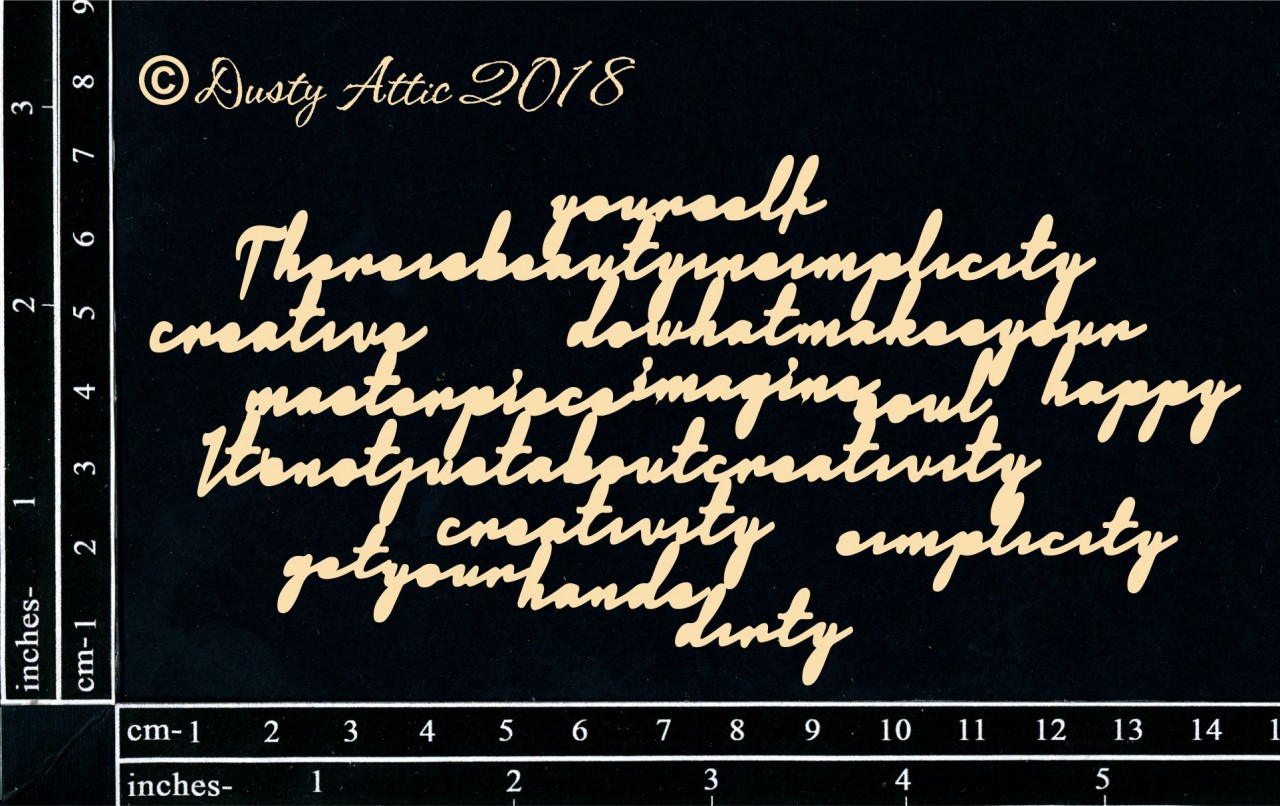 © Dusty Attic 2018
yourself
Thereisbeautyinsimplicity
creative dowhatmakesyour
masterpiece imagine soul happy
It'snotjustaboutcreativity
creativity simplicity
getyour hands
dirty
9
8
7
6
5
4
3
2
cm-1
3
2
1
inches-
cm-1 2 3 4 5 6 7 8 9 10 11 12 13 14 1
inches- 1 2 3 4 5